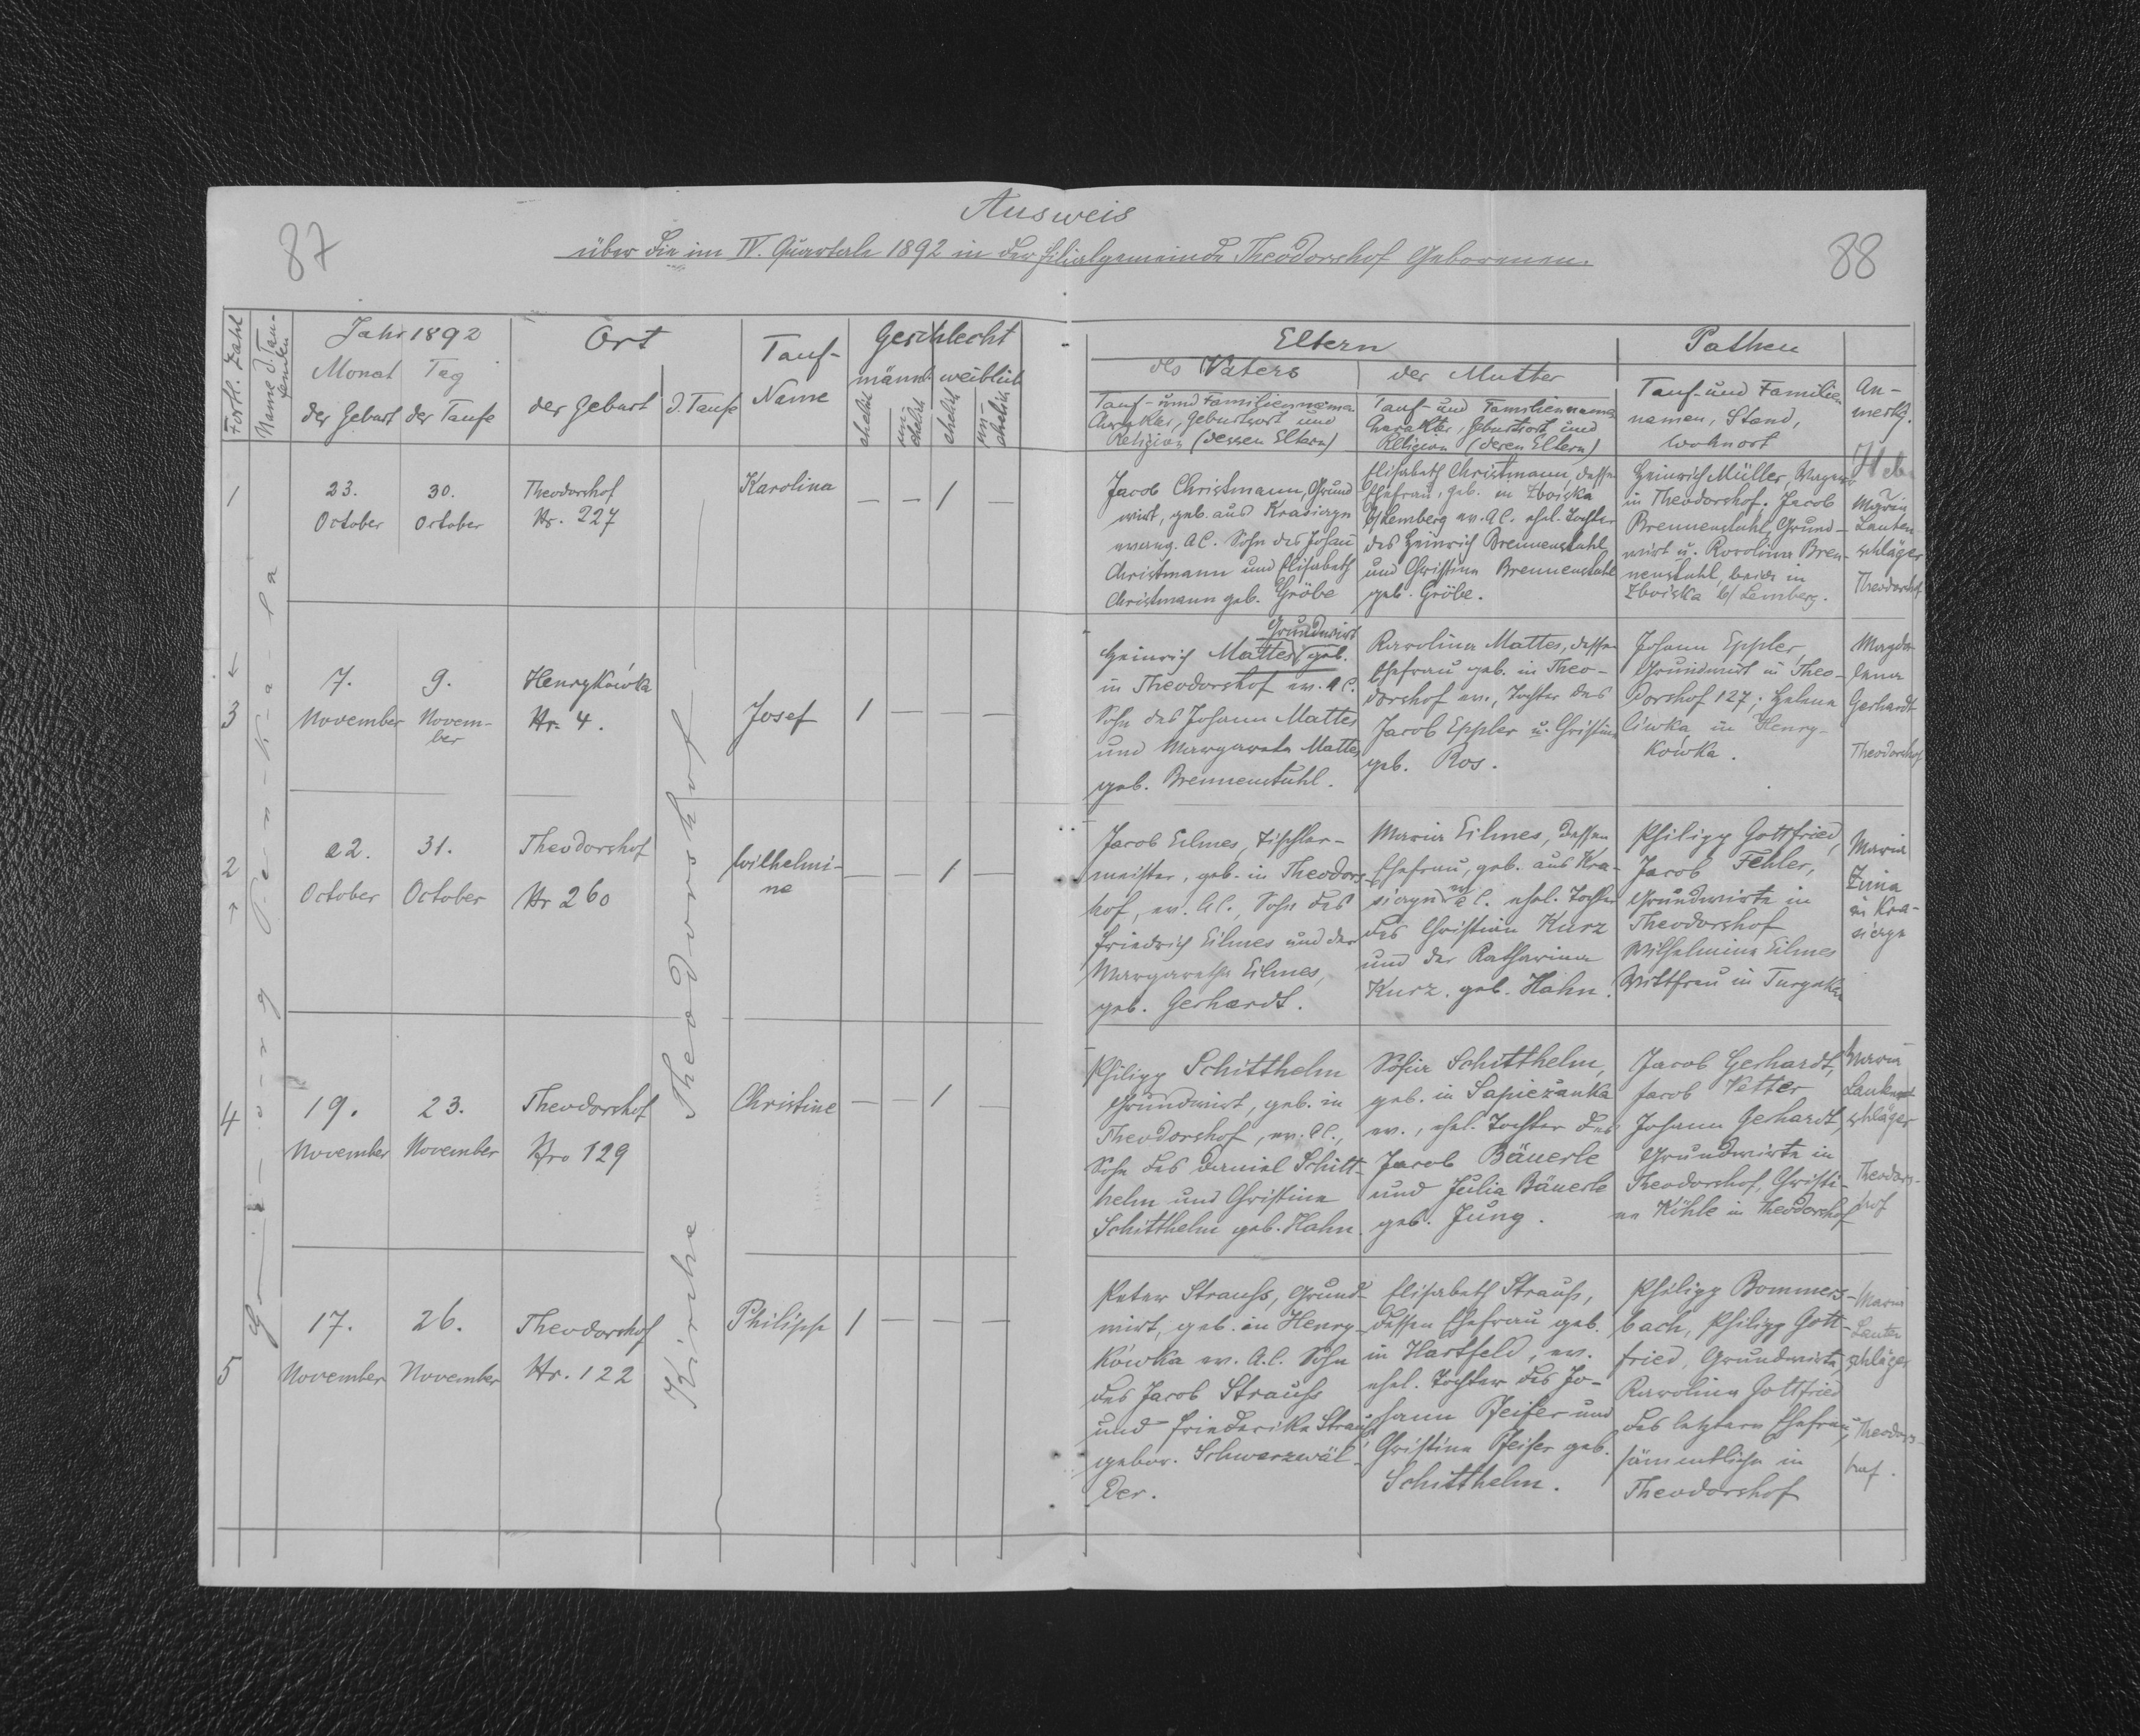 87
88
Ausweis
über die im IV. Quartale 1892 in der Filialgemeinde Theodorshof Geborenen.
Fortl. Zahl
Name d. Tau-
fenden
Jahr 1892
Monat Tag
der Geburt der Taufe
Ort
der Geburt
d. Taufe
Tauf-
Name
Geschlecht
männl. weiblich
ehelich
un-
ehelich
ehelich
un-
ehelich
Eltern
des Vaters
Tauf- und Familienname
Charakter, Geburtsort und
Religion (dessen Eltern)
der Mutter
Tauf- und Familienname
Charakter, Geburtsort und
Religion (deren Eltern)
Pathen
Tauf- und Familien
namen, Stand,
Wohnort
An-
merkg.
Kirche Theodorshof
1
23.
October
30.
October
Theodorshof
Nr. 227
Karolina
— — 1 —
Jacob Christmann, Grund
wirt, geb. aus Krasiczyn
evang. A.C. Sohn des Johan̄
Christmann und Elisabeth
Christmann geb. Gröbe
Elisabeth Christmann, dessen
Ehefrau, geb. in Zboiska
b/Lemberg ev. A.C. ehel. Tochter
des Heinrich Brennenstuhl
und Christina Brennenstuhl
geb. Gröbe.
Heinrich Müller, Wagner
in Theodorshof. Jacob
Brennenstuhl, Grund-
wirt u. Karolina Bren-
nenstuhl, beide in
Zboiska b/Lemberg.
Heb.
Maria
Lauten
schläger
Theodorshof
3
7.
November
9.
Novem-
ber
Henrykówka
Nr. 4.
Josef
1 — — —
Grundwirt
Heinrich Mattes geb.
in Theodorshof ev. A.C.
Sohn des Johann Mattes
und Margareta Mattes
geb. Brennenstuhl.
Karolina Mattes, dessen
Ehefrau geb. in Theo-
dorshof ev., Tochter des
Jacob Eppler u. Christina
geb. Ros.
Johann Eppler,
Grundwirt in Theo-
dorshof 127; Helena
Ciwka in Henry-
kówka.
Magda-
lena
Gerhardt
Theodorshof
2
22.
October
31.
October
Theodorshof
Nr 260
Wilhelmi-
ne
— — 1 —
Jacob Eilmes, Tischler-
meister, geb. in Theodors-
hof, ev. A.C., Sohn des
Friedrich Eilmes und der
Margaretha Eilmes,
geb. Gerhardt.
Maria Eilmes, dessen
Ehefrau, geb. aus Kra-
siczyn ev. A.C. ehel. Tochter
des Christian Kurz
und der Katharina
Kurz. geb. Hahn.
Philipp Gottfried,
Jacob Fehler,
Grundwirte in
Theodorshof
Wilhelmina Eilmes
Wittfrau in Turynka
Maria
in Kra-
siczyn
4
19.
November
23.
November
Theodorshof
Nro 129
Christine
— — 1 —
Philipp Schitthelm
Grundwirt, geb. in
Theodorshof, ev. A.C.,
Sohn des Daniel Schitt-
helm und Christina
Schitthelm geb. Hahn.
Sofia Schitthelm,
geb. in Sapiezanka
ev., ehel. Tochter des
Jacob Bäuerle
und Julia Bäuerle
geb. Jung.
Jacob Gerhardt,
Jacob Vetter
Johann Gerhardt,
Grundwirte in
Theodorshof, Christi-
ne Köhle in Theodorshof
Maria
Lauten
schläger
Theodors-
hof
5
17.
November
26.
November
Theodorshof
Nr. 122
Philipp
1 — — —
Peter Strauhs, Grund-
wirt, geb. in Henry-
kówka ev. A.C. Sohn
des Jacob Strauhs
und Friederika Strauhs
gebor. Schwarzwäl-
der.
Elisabeth Strauhs,
dessen Ehefrau geb.
in Hartfeld, ev.
ehel. Tochter des Jo-
hann Pfeifer und
Christina Pfeifer geb.
Schitthelm.
Philipp Bommers-
bach, Philipp Gott-
fried, Grundwirte
Karolina Gottfried
des letztern Ehefrau,
sämmtliche in
Theodorshof
Maria
Lauten
schläger
Theodors-
hof.